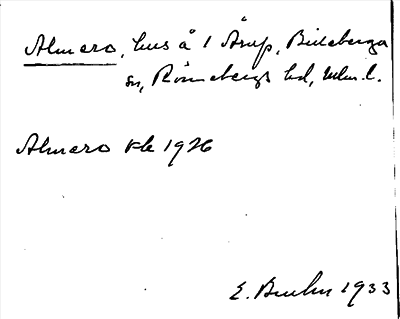 Almero, hus å 1 Årup, Billeberga
sn, Rönnebergs hd, Mlm. l.
Almero Kk 1926
E. Bruhn 1933